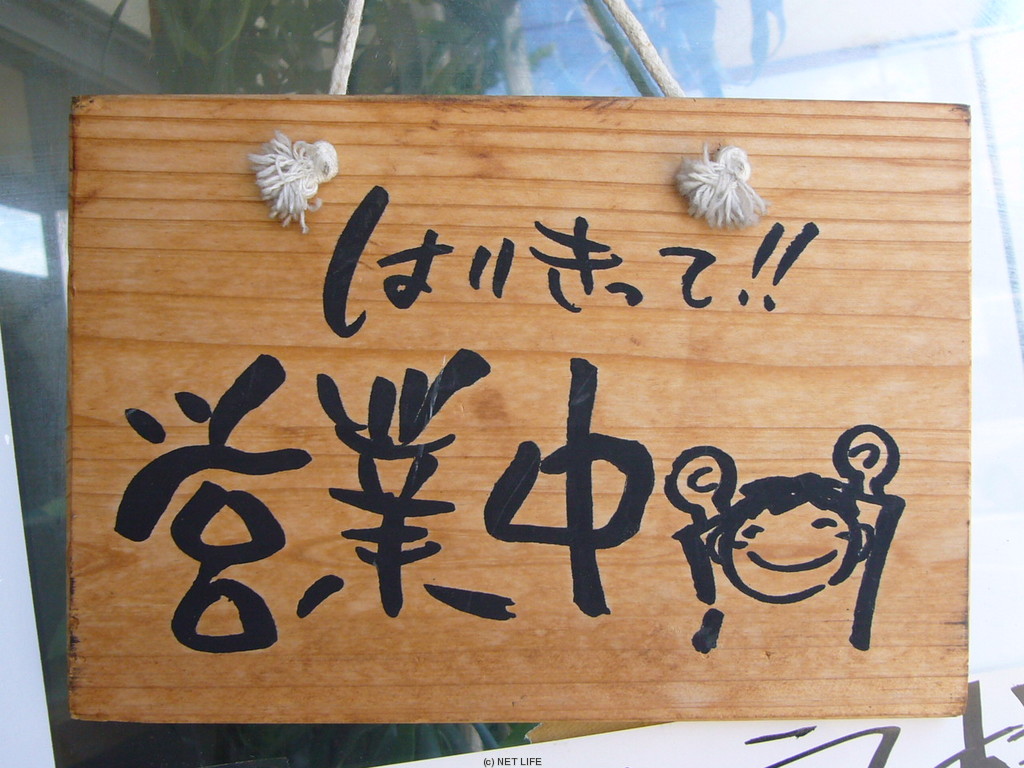 はりきって!!
営業中
(c) NET LIFE